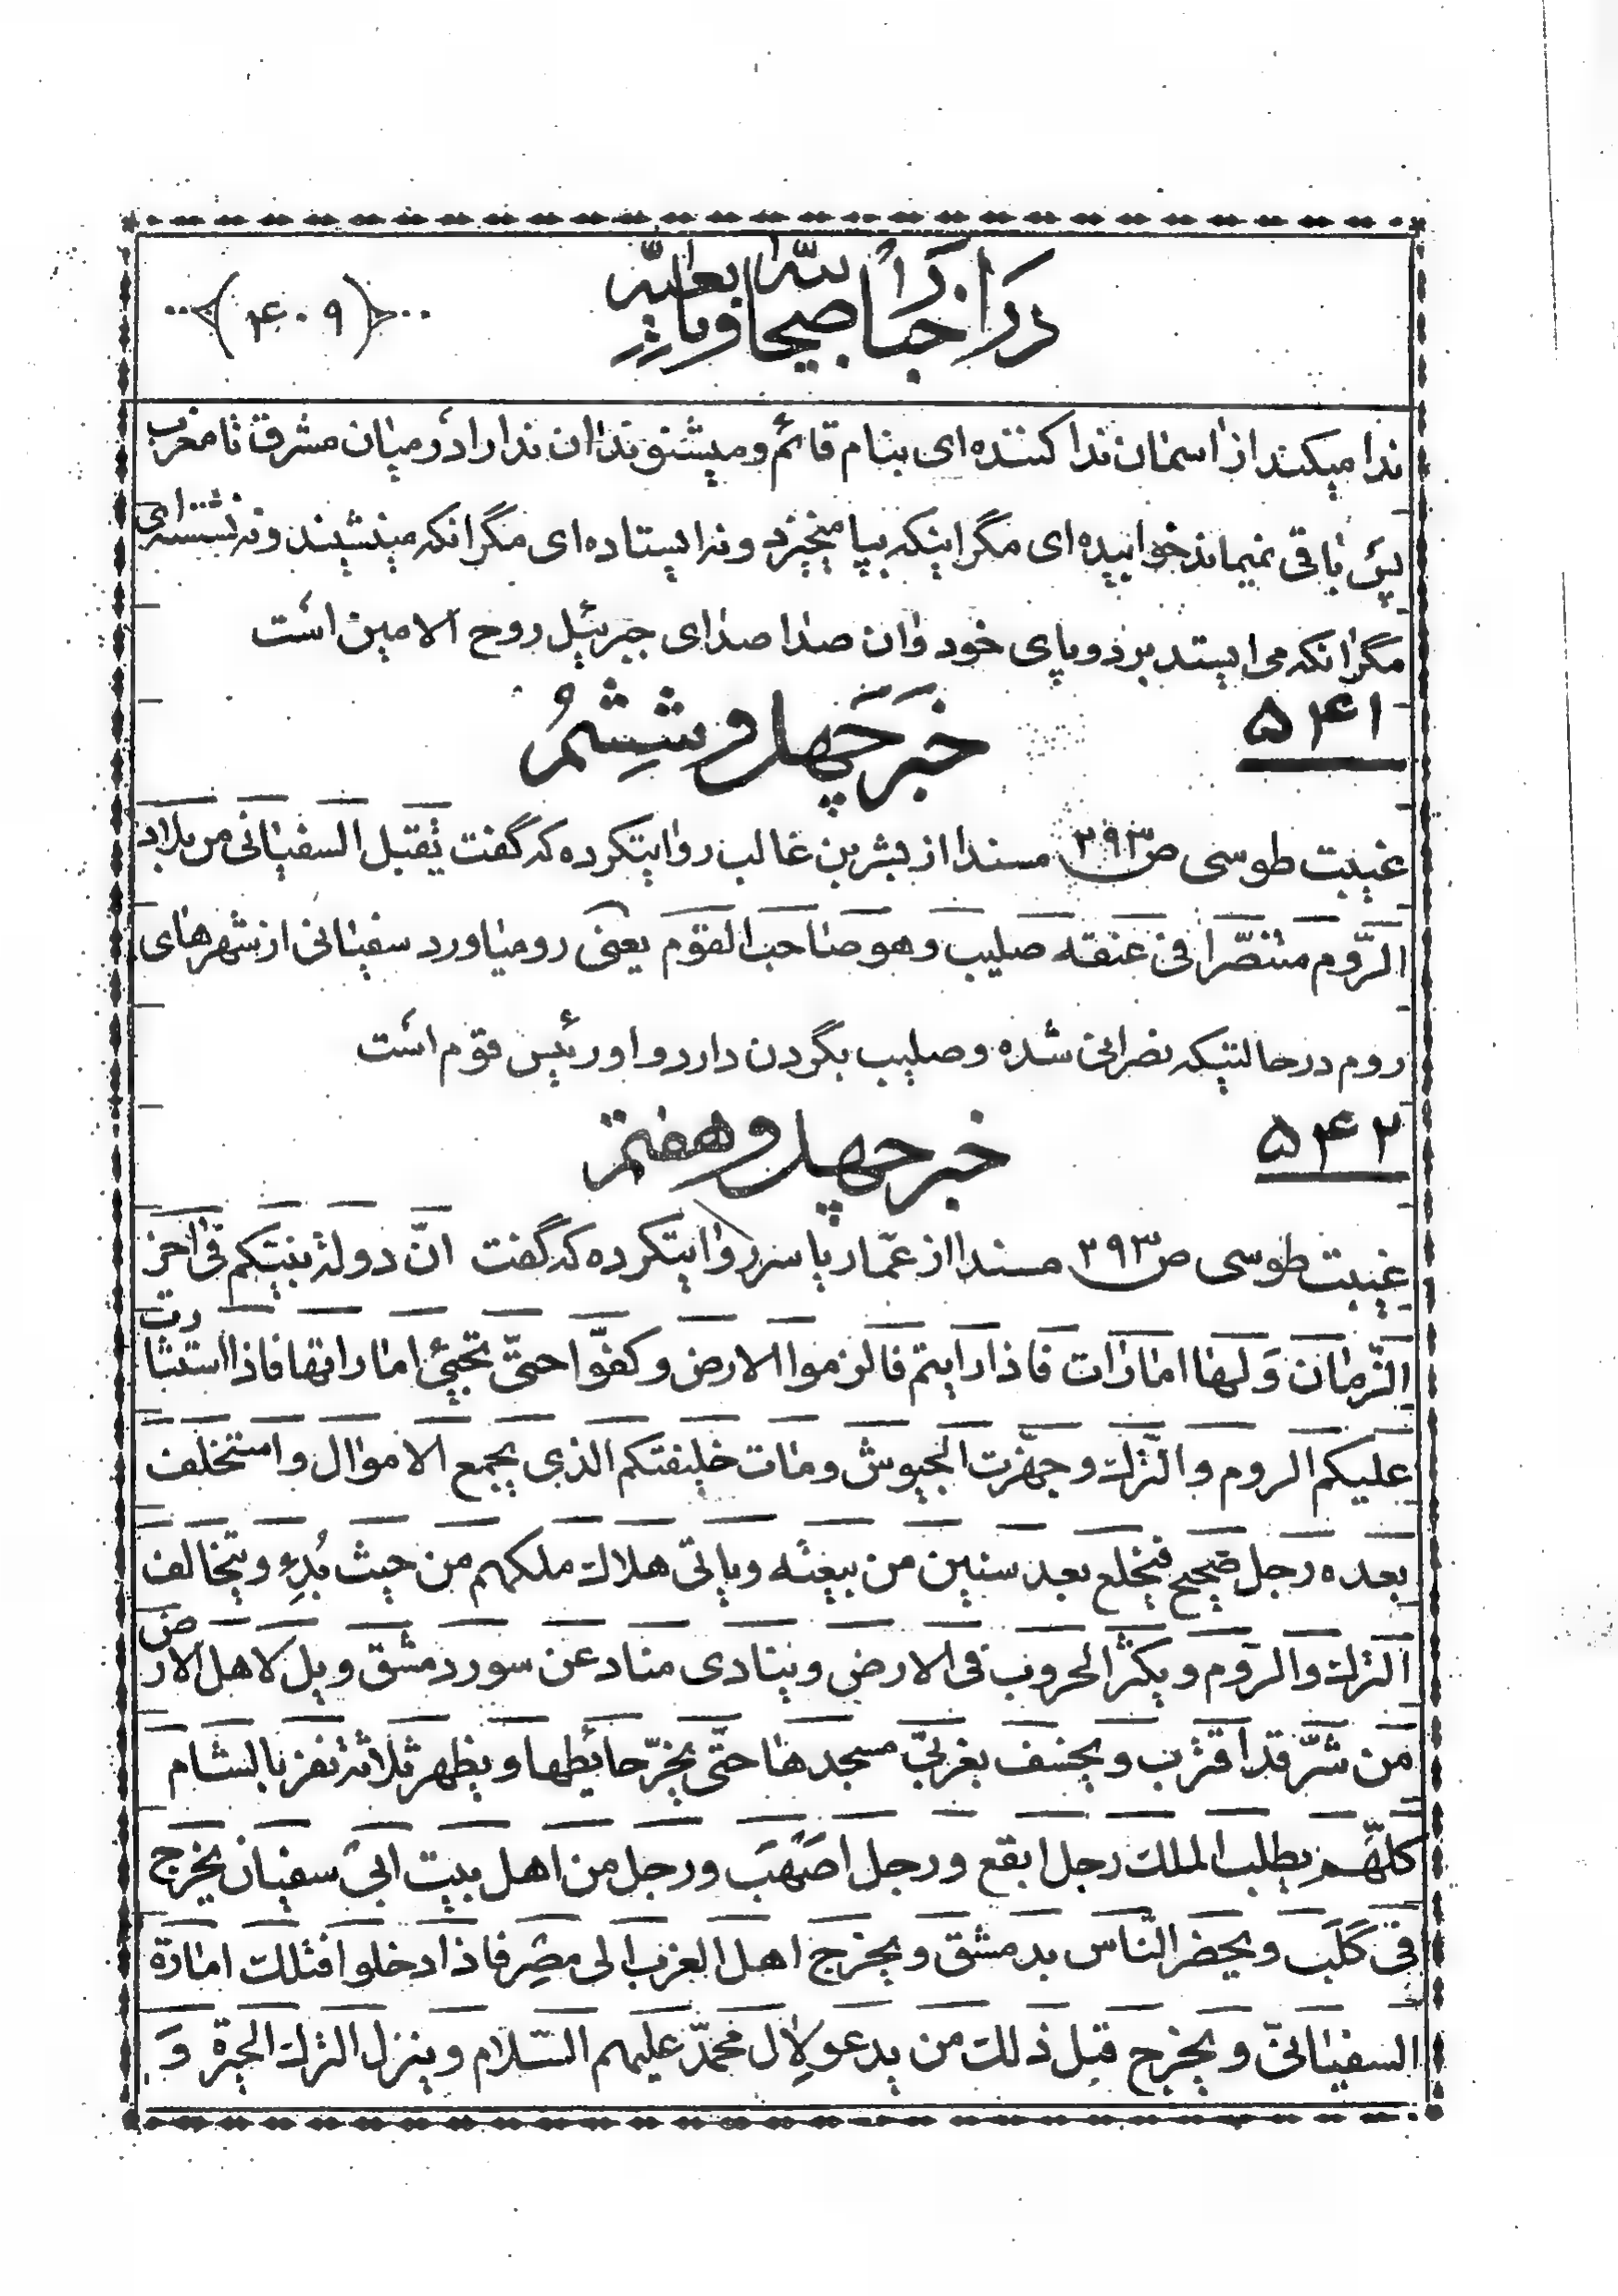 در اخبار صحابه و تابعین
(۴۰۹)
ندا میکند از اسمان ندا کننده‌ای بنام قائم و میشنوند ان ندا را در میان مشرق تا مغرب
پس باقی نمیماند خوابیده‌ای مگر اینکه بپا میخیزد و نه ایستاده‌ای مگر انکه مینشیند و نه نشسته‌ای
مگر انکه می ایستد بر دو پای خود و ان صدا صدای جبرئیل روح الامین است
۵۴۱ خبر چهل و ششم
غیبت طوسی ص۲۹۳ مسندا از بشر بن غالب روایتکرده که گفت یقبل السفیانی من بلاد
الرّوم متنصّرا فی عنقه صلیب و هو صاحب القوم یعنی رو میاورد سفیانی از شهرهای
روم در حالتیکه نصرانی شده و صلیب بگردن دارد و او رئیس قوم است
۵۴۲ خبر چهل و هفتم
غیبت طوسی ص۲۹۳ مسندا از عمّار یاسر روایتکرده که گفت انّ دولة بنیتکم فی آخر
الزّمان وَلها امارات فاذا رایتم فالزموا الارض و کفّوا حتّی تجیئ اماراتها فاذا استثارت
علیکم الروم و التّرك و جهّزت الجیوش و مات خلیفتکم الذی یجمع الاموال و استخلف
بعده رجل صحیح فیخلع بعد سنین من بیعته و یاتی هلاك ملکهم من حیث بُدِء و یتخالف
الترك و الرّوم و یکثر الحروب فی الارض و ینادی مناد عن سور دمشق ویل لاهل الارض
من شرّ قد اقترب و یخسف بغربیّ مسجدها حتّی یخرّ حائطها و یظهر ثلاثة نفر بالشام
کلهّم یطلب الملك رجل ابقع و رجل اصهَب و رجل من اهل بیت ابی سفیان یخرج
فی کلَب و یحضر النّاس بدمشق و یخرج اهل الغرب الی مصر فاذا دخلوا فتلك امارة
السفیانیّ و یخرج قبل ذلك من یدعو لاٰل محمّد علیهم السّلام و ینزل الترك الحیرة وَ